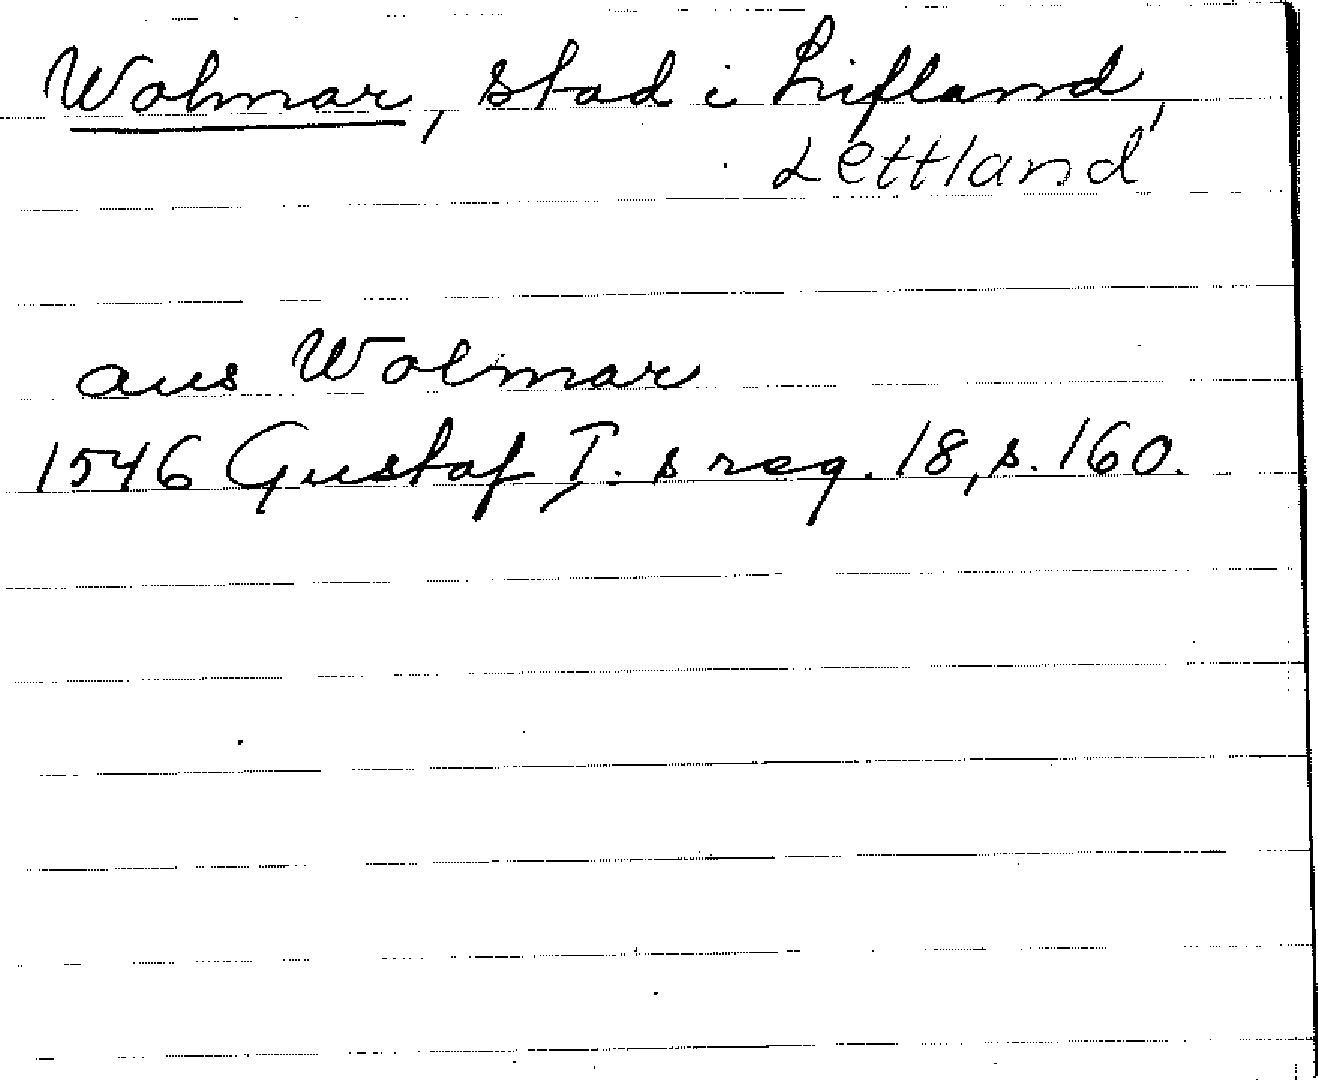 Wolmar, stad i Lifland,
Lettland
aus Wolmar
1546 Gustaf I. s reg. 18, s. 160.